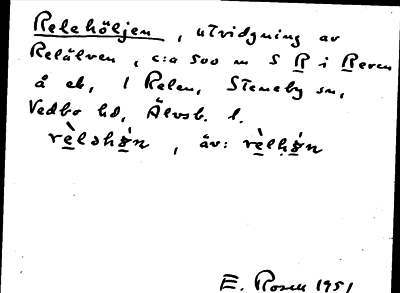 Relehöljen, utvidgning av
Relälven, c:a 500 m S R i Reven
å ek, 1 Relen, Steneby sn,
Vedbo hd, Älvsb. l.
rèləhǿn, äv: rèlhǿn
E. Rosen 1951